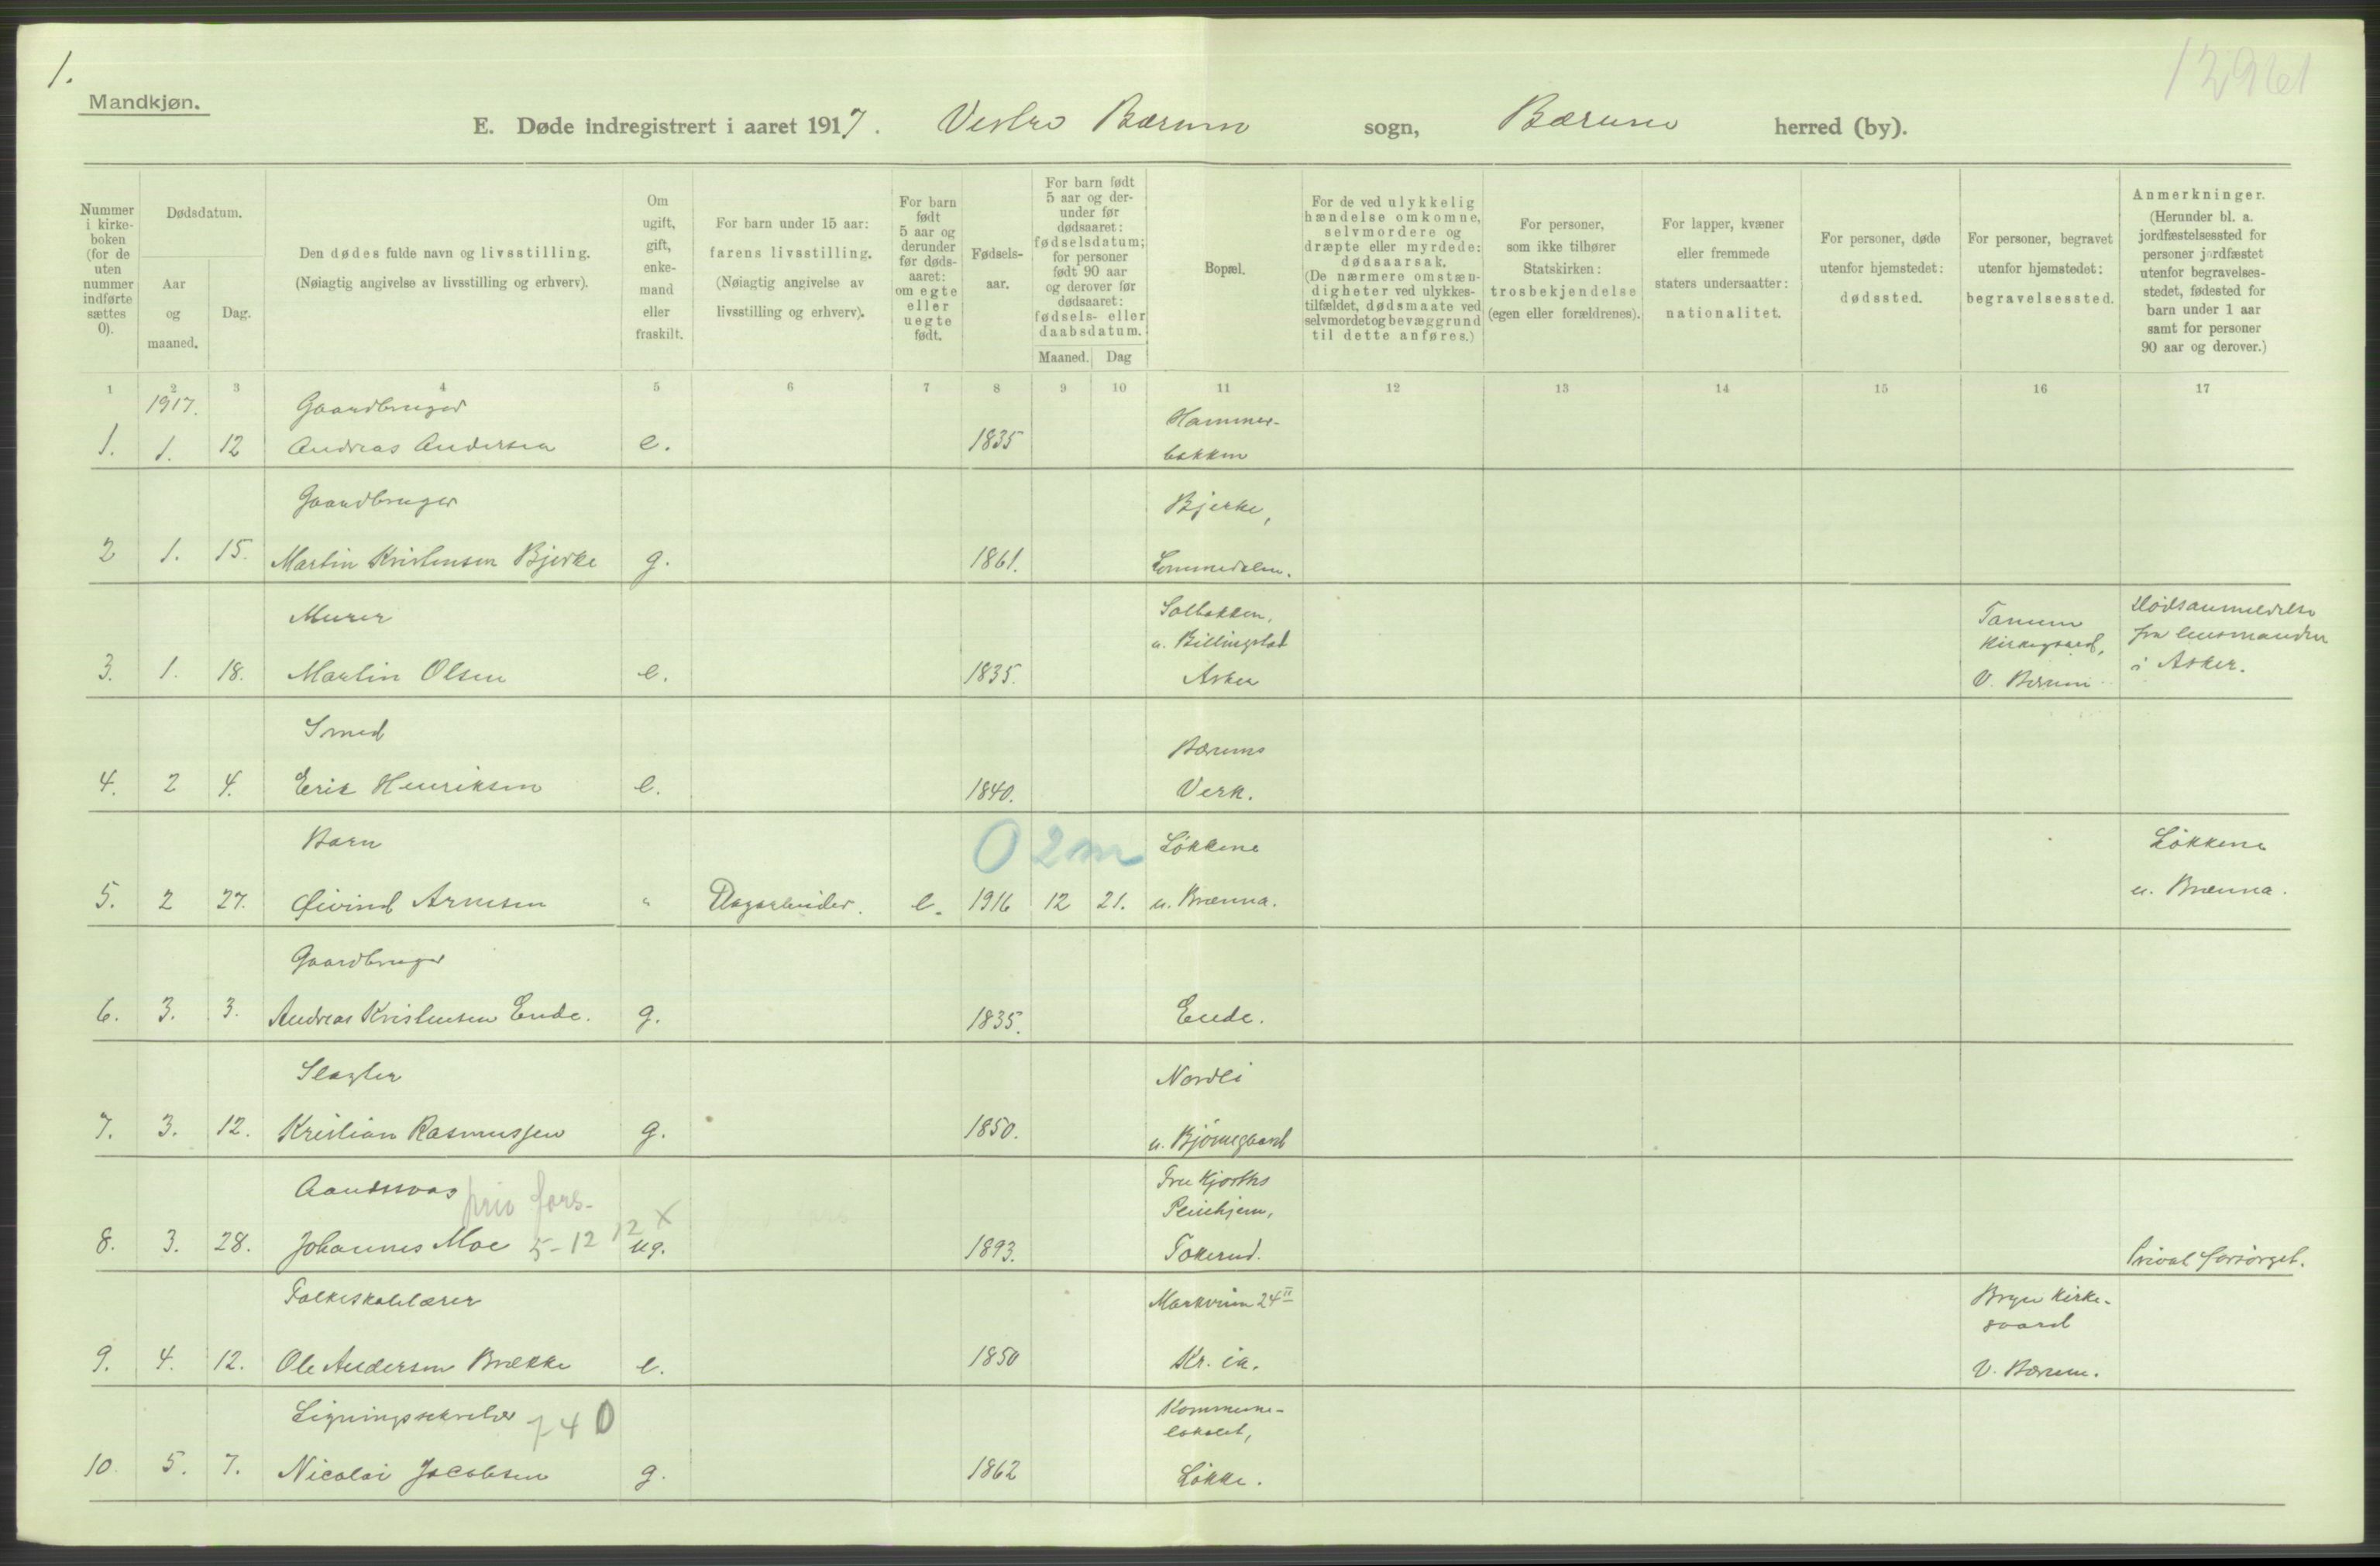 1.
12961
Mandkjøn.
E. Døde indregistrert i aaret 1917. Vestre Bærum sogn, Bærum herred (by).
Nummer i kirke-boken (for de uten nummer indførte sættes 0).
Dødsdatum.
Aar og maaned.
Dag.
Den dødes fulde navn og livsstilling.
(Nøiagtig angivelse av livsstilling og erhverv).
Om ugift, gift, enke-mand eller fraskilt.
For barn under 15 aar: farens livsstilling.
(Nøiagtig angivelse av livsstilling og erhverv).
For barn født 5 aar og derunder før døds-aaret: om egte eller uegte født.
Fødsels-aar.
For barn født 5 aar og der-under før dødsaaret: fødselsdatum; for personer født 90 aar og derover før dødsaaret: fødsels- eller daabsdatum.
Maaned. Dag
Bopæl.
For de ved ulykkelig hændelse omkomne, selvmordere og dræpte eller myrdede: dødsaarsak.
(De nærmere omstæn-digheter ved ulykkes-tilfældet, dødsmaate ved selvmordet og bevæggrund til dette anføres.)
For personer, som ikke tilhører Statskirken: trosbekjendelse (egen eller forældrenes).
For lapper, kvæner eller fremmede staters undersaatter: nationalitet.
For personer, døde utenfor hjemstedet: dødssted.
For personer, begravet utenfor hjemstedet: begravelsessted.
Anmerkninger.
(Herunder bl. a. jordfæstelsessted for personer jordfæstet utenfor begravelses-stedet, fødested for barn under 1 aar samt for personer 90 aar og derover.)
1 2 3 4 5 6 7 8 9 10 11 12 13 14 15 16 17
1917. Gaardbruger Hammer-
1. 1. 12 Andreas Andersen e. 1835 bakken
Gaardbruger Bjerke,
2 1. 15. Martin Kristensen Bjerke g. 1861. Lommedalen.
Murer Solbakken, Tanum Dødsanmeldelse
u. Billingstad Kirkegaard, fra lensmanden
3. 1. 18. Martin Olsen e. 1835. Asker V. Bærum i Asker.
Smed Bærums
4. 2 4. Erik Henriksen e. 1840. Verk.
Barn 0 2m Løkkene Løkkene
5. 2 27. Øivind Arnesen " Dagarbeider. e. 1916 12 21. u. Brænna. u. Brænna.
Gaardbruger
6. 3. 3. Andreas Kristensen Eude. g. 1835. Eude.
Slagter Nordli
7. 3. 12. Kristian Rasmussen g. 1850. u. Bjørnegaard
Aandssvag priv fors. Fru Kjorths
x Pleiehjem,
8. 3. 28. Johannes Moe 5-12 12 ug. 1893. Tokerud. Privat forsørget.
Folkeskolelærer Markveien 24 II Bryn Kirke-
gaard
9. 4. 12. Ole Andersen Brække e. 1850 Kr.ia. V. Bærum.
Ligningssekretær 740 Kommune-
lokalet,
10. 5. 7. Nicolai Jacobsen g. 1862 Løkke.